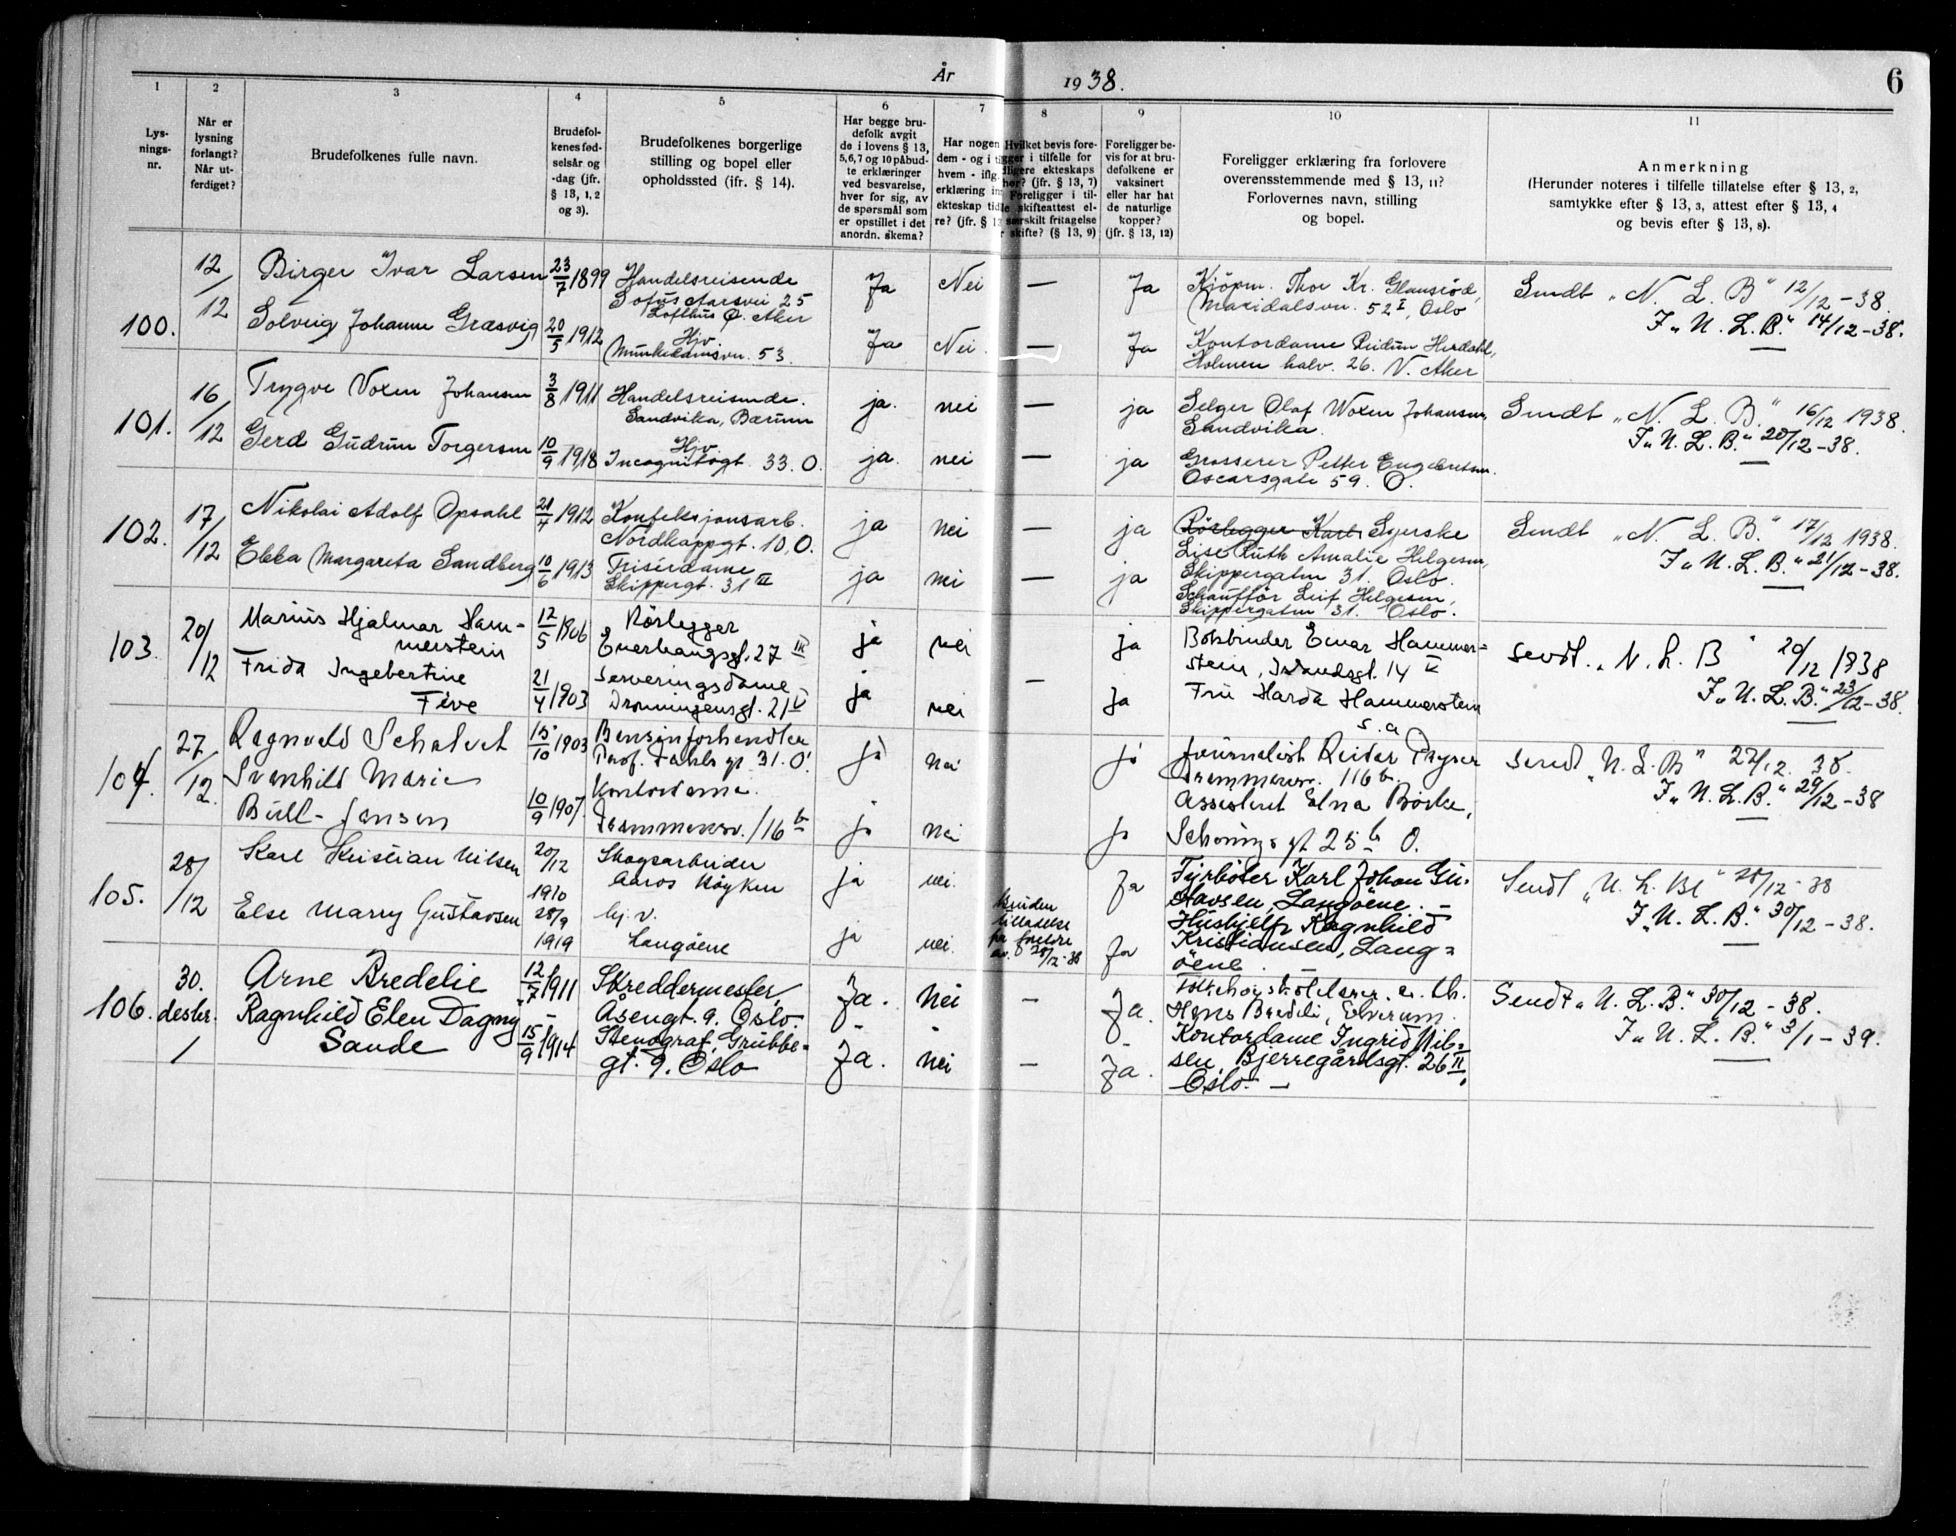 År 1938.
6
1
Lys-
nings-
nr.
2
Når er
lysning
forlangt?
Når ut-
ferdiget?
3
Brudefolkenes fulle navn.
4
Brudefol-
kenes fød-
selsår og
-dag (jfr.
§ 13, 1, 2
og 3).
5
Brudefolkenes borgerlige
stilling og bopel eller
opholdssted (ifr. § 14).
6
Har begge bru-
defolk avgit
de i lovens § 13,
5, 6, 7 og 10 påbud-
te erklæringer
ved besvarelse,
hver for sig, av
de spørsmål som
er opstillet i det
anordn. skema?
7
Har nogen
dem - og i
hvem - iflg.
erklæring
ekteskap tid
re? (jfr. § 13
8
Hvilket bevis fore-
ligger i tilfelle for
tidligere ekteskaps
(jfr. § 13, 7)
Foreligger i til-
felle skifteattest el-
særskilt fritagelse
skifte? (§ 13, 9)
9
Foreligger be-
vis for at bru-
defolkene er
vaksinert
eller har hat
de naturlige
kopper?
(jfr. § 13, 12)
10
Foreligger erklæring fra forlovere
overensstemmende med § 13, 11?
Forlovernes navn, stilling
og bopel.
11
Anmerkning
(Herunder noteres i tilfelle tillatelse efter § 13, 2,
samtykke efter § 13, 3, attest efter § 13, 4
og bevis efter § 13, 8).
100.
12/12
Birger Ivar Larsen
23/7 1899
Handelsreisende
Sofus Aarsvei 25
Lofthus Ø. Aker
Ja
Nei
—
Ja
Kjöpm. Thor Kr. Glansröd,
Maridalsvn. 52 I, Oslo
Sendt "N. L. B" 12/12 - 38.
I "N. L. B." 14/12 - 38.
Solveig Johanne Græsvig
20/5 1912
Hjv.
Munkedamsvn. 53.
Ja
Nei.
—
Ja
Kontordame Reidun Herdahl,
Holmen halv. 26. V. Aker
101.
16/12
Trygve Woxen Johansen
3/8 1911
Handelsreisende.
Sandvika, Bærum
ja.
nei
—
ja
Selger Olaf Woxen Johansen,
Sandvika.
Sendt "N. L. B." 16/12 1938.
I "N. L. B." 20/12 - 38.
Gerd Gudrun Torgersen
10/9 1918
Hjv.
Incognitogt. 33. O.
ja.
nei
—
ja
Grosserer Petter Engebretsen.
Oscarsgate 59. O.
102.
17/12
Nikolai Adolf Opsahl
21/4 1912
Konfeksjonsarb.
Nordkappgt. 10. O.
ja
nei
—
ja
Rörlegger Karl Syerske
Lise Ruth Amalie Helgesen,
Skippergaten 31. Oslo.
Sendt "N. L. B." 17/12 1938.
I "N. L. B." 21/12 - 38.
Ebba Margareta Sandberg
10/6 1913
Frisérdame
Skippergt. 31 III
ja
nei
—
ja
Schaufför Leif Helgesen,
Skippergaten 31. Oslo.
103.
20/12
Marius Hjalmar Ham-
merstein
12/5 1906
Rörlegger
Enerhaugsgt. 27 III
ja
nei
ja
Bokbinder Einar Hammer-
stein, Islandsgt. 14
sendt. "N. L. B" 20/12 1938
I "N. L. B." 23/12 - 38.
Frida Ingebertine
Five
21/4 1903
Serveringsdame
Dronningensgt. 21 V
ja
nei
—
Ja
Fru Harda Hammerstein
s. a
104.
27/12
Ragnvald Schalvet
15/10 1903
Bensinforhandler
Prof. Dahls gt 31. O.
ja
nei
ja
Journalist Reidar Thyser
Drammensv. 116 b.
Sendt "N. L. B" 27/12. 38.
I "N. L. B." 29/12 - 38
Svanhild Marie
Bull-Jensen
10/9 1907.
Kontordame.
Drammensv. 116 b
ja
nei
ja
Assistent Elna Börke,
Schönings gt 25 b O.
105.
28/12
Karl Kristian Nilsen
20/12
1910
Skogsarbeider
Aaros Röyken
ja
nei.
Ja
Fyrböter Karl Johan Gu-
stavsen, Langöene. —
Sendt "N. L. Bl" 28/12 - 38
I "N. L. B." 30/12 - 38.
Else Marry Gustavsen
28/9
1919
hj. v.
Langöene
ja
nei.
Bruden
tillatelse
fra foreldre
av. 28/12-38
Ja
Hushjelp Ragnhild
Kristiansen, Lang-
öene. —
106.
30.
desbr.
Arne Bredelie
12/7 1911
Skreddermester,
Åsengt. 9. Oslo.
Ja.
Nei
—
Ja.
Folkehøiskolelærer
Hans Bredeli, Elverum.
Sendt "N. L. B." 30/12 - 38.
I "N. L. B." 3/1 - 39.
Ragnhild Elen Dagny
Sande
15/9 1914
Stenograf, Grubbe-
gt. 9. Oslo
Ja.
nei
—
Ja.
Kontordame Ingrid Nil-
sen, Bjerregårdsgt. 26 II,
Oslo. —